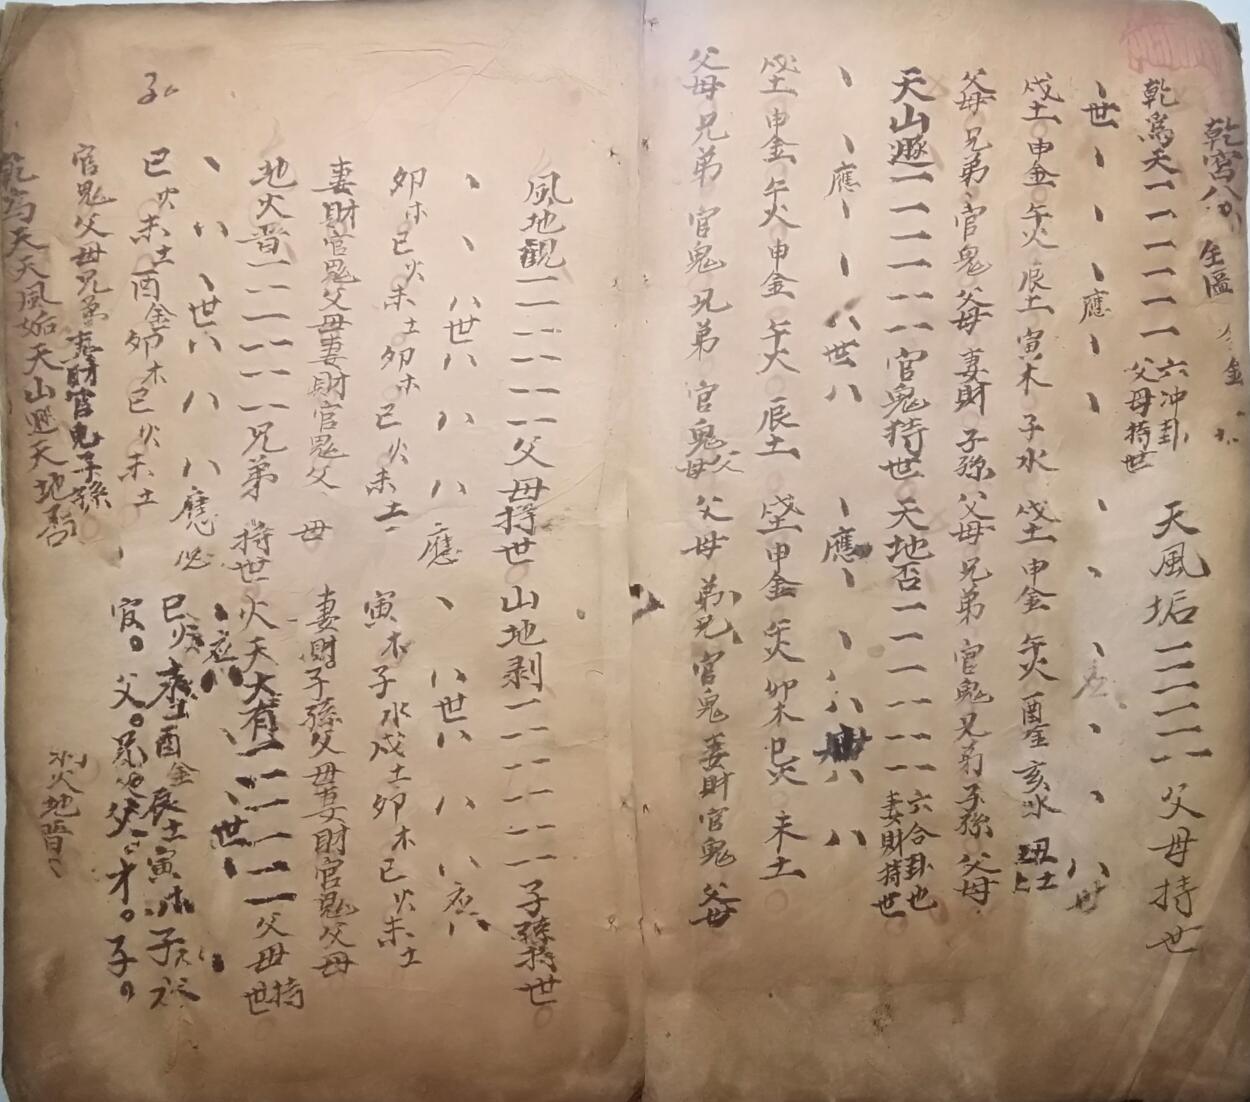 乾宮八卦 全圖 金
乾爲天 六冲卦 父母持世 天風垢 父母持世
世 應
戌土 申金 午火 辰土 寅木 子水 戌土 申金 午火 酉金 亥水 丑土
父母 兄弟 官鬼 父母 妻財 子孫 父母 兄弟 官鬼 兄弟 子孫 父母
天山遯 官鬼持世 天地否 六合卦也 妻財持世
應 世 應
戌土 申金 午火 申金 午火 辰土 戌土 申金 午火 卯木 巳火 未土
父母 兄弟 官鬼 兄弟 官鬼 父母 父母 弟兄 官鬼 妻財 官鬼 父母
風地觀 父母持世 山地剥 子孫持世
丶 丶 八世 八 八 八應 丶 八世 八 八 八应 八
卯木 巳火 未土 卯木 巳火 未土 寅木 子水 戌土 卯木 巳火 未土
妻財 官鬼 父母 妻財 官鬼 父母 妻財 子孫 父母 妻財 官鬼 父母
地火晋 兄弟持世 火天大有 父母持世
丶 八 丶世 八 八 八應 应 世
巳火 未土 酉金 卯木 巳火 未土 巳火 未土 酉金 辰土 寅木 子水
官鬼 父母 兄弟 妻財 官鬼 子孫 官。父。兄。父。才。子。
乾爲天 天風姤 天山遯 天地否 火地晋